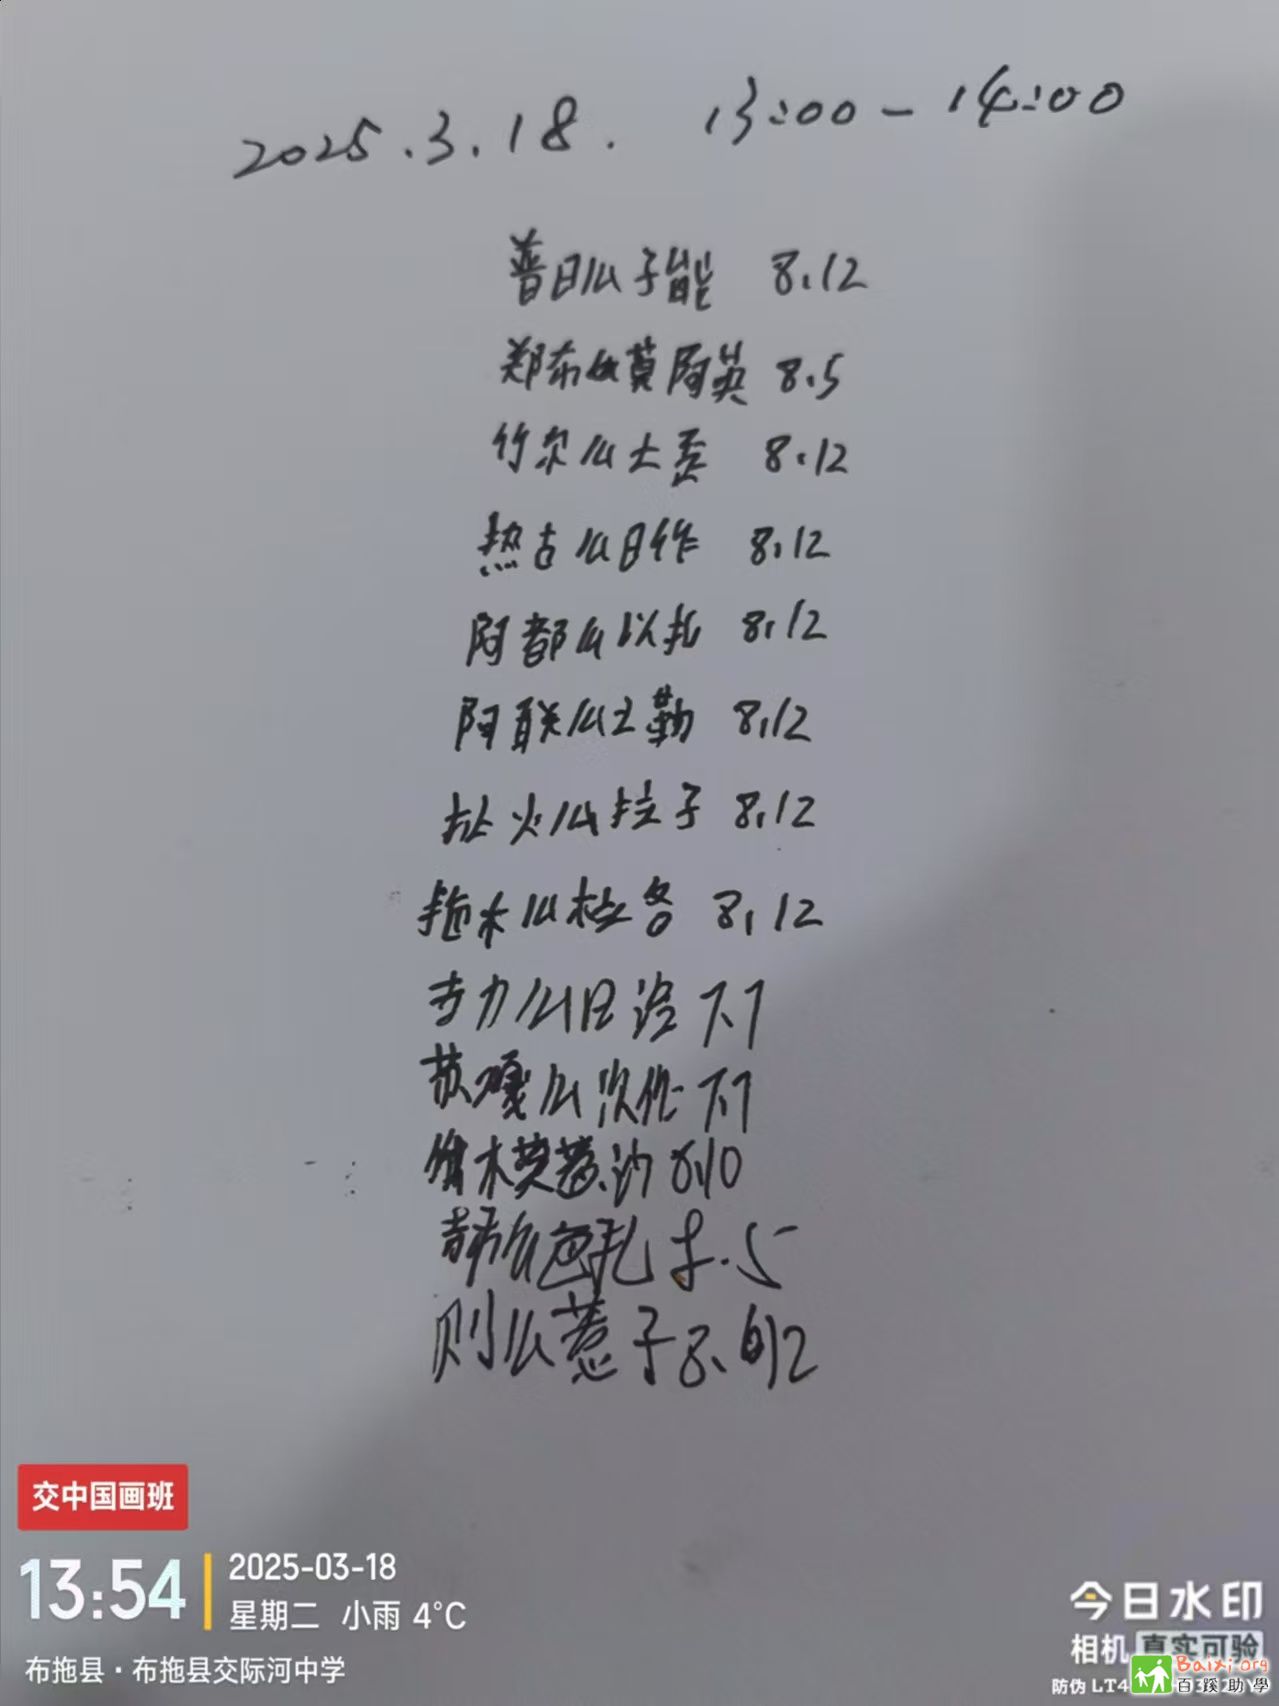 2025.3.18. 13:00-14:00
普日么子能 8.12
郑布么莫阿英 8.5
竹尔么土 8.12
热古么日作 8.12
阿都么以扎 8.12
阿联么土勒 8.12
火么拉子 8.12
拖木么 各 8.12
力么日 7.1
苏嘎么次作 7.1
木 惹沙 8.10
么色扎 .5
则么惹子 8. 12
交中国画班
13:54
2025-03-18
星期二 小雨 4°C
布拖县·布拖县交际河中学
今日水印
相机 真实可验
防伪 LT4
Baixi.org
百蹊助學